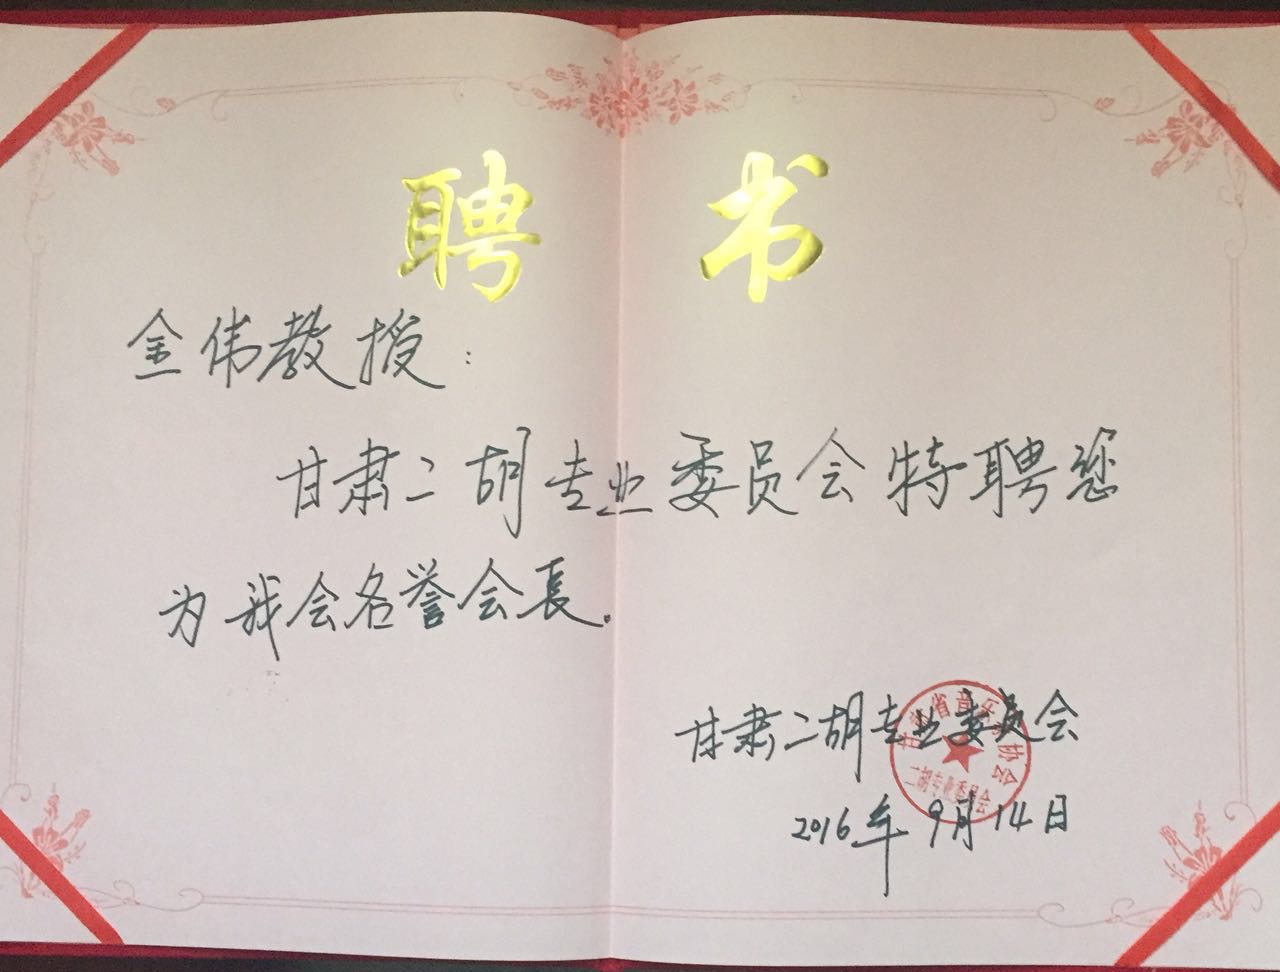 聘 书
金伟教授:
甘肃二胡专业委员会特聘您
为我会名誉会長.
甘肃二胡专业委员会
甘肃省音乐家协会
二胡专业委员会
2016年9月14日